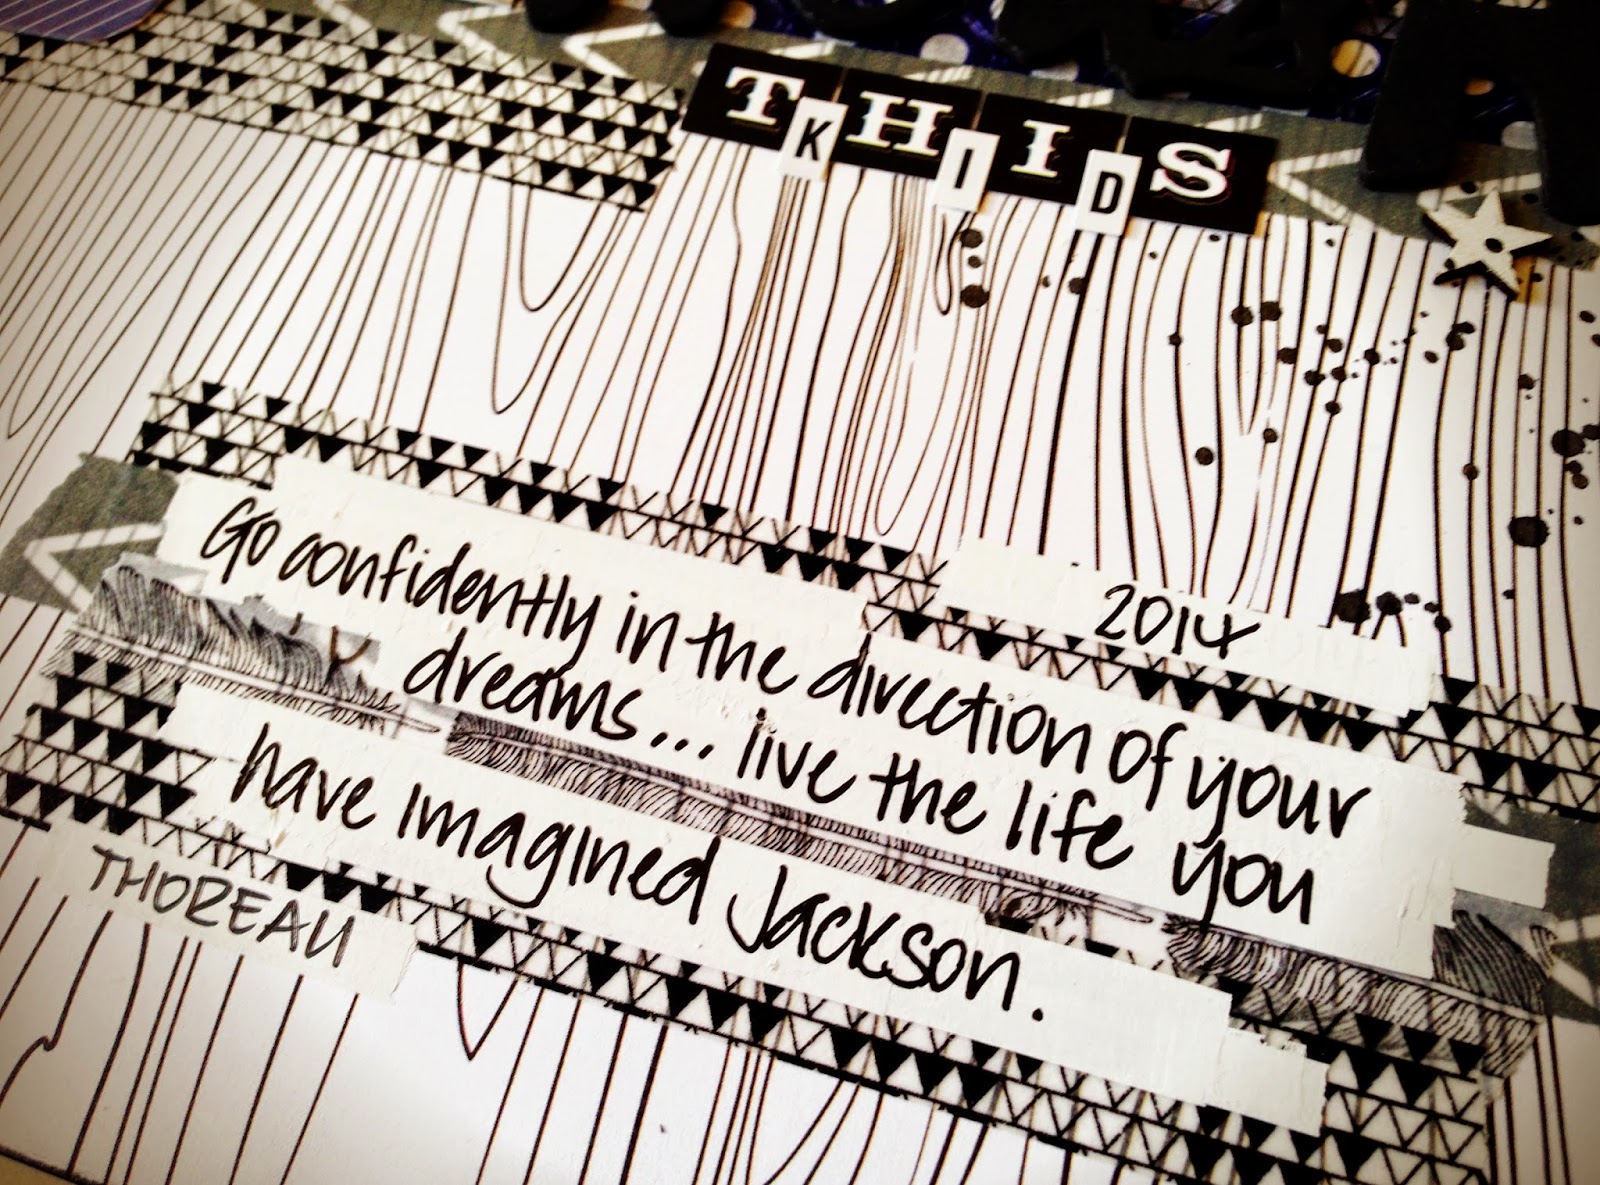 THIS
KID
2014
Go confidently in the direction of your
dreams... live the life you
have imagined Jackson.
THOREAU